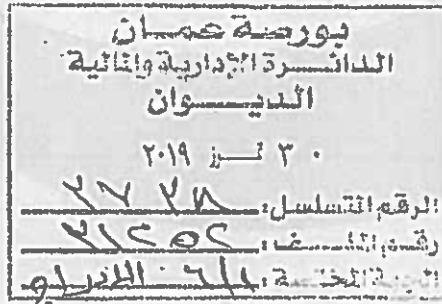 بورصة عمان
الدائرة الإدارية والمالية
الديوان
٣٠ تموز ٢٠١٩
الرقم المتسلسل:
رقم الملف: ٣١٢٥٢
الجهة المختصة: